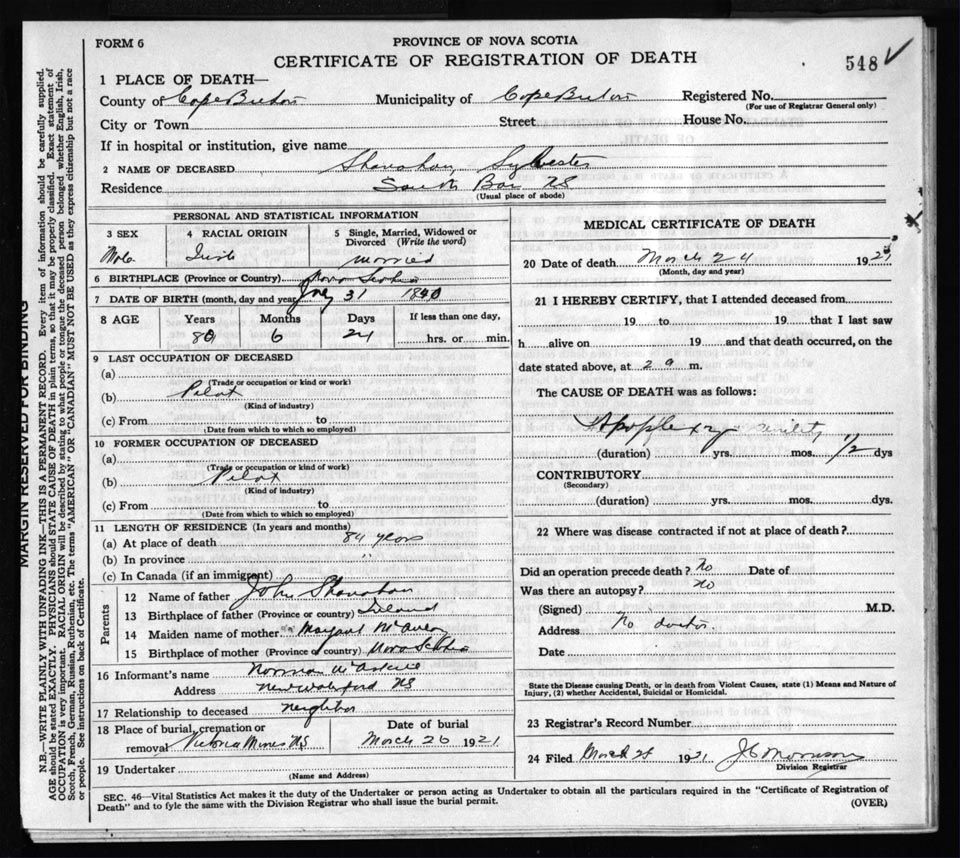 FORM 6
PROVINCE OF NOVA SCOTIA
CERTIFICATE OF REGISTRATION OF DEATH
548
1 PLACE OF DEATH—
County of Cape Breton Municipality of Cape Breton Registered No.
(For use of Registrar General only)
City or Town Street House No.
If in hospital or institution, give name
2 NAME OF DECEASED Shanahan, Sylvester
Residence South Bar NS
(Usual place of abode)
PERSONAL AND STATISTICAL INFORMATION
3 SEX 4 RACIAL ORIGIN 5 Single, Married, Widowed or Divorced (Write the word)
Male Irish Married
6 BIRTHPLACE (Province or Country) Nova Scotia
7 DATE OF BIRTH (month, day and year) 31 1840
8 AGE Years Months Days If less than one day,
80 6 24 hrs. or min.
9 LAST OCCUPATION OF DECEASED
(a)
(Trade or occupation or kind or work)
(b) Pilot
(Kind of industry)
(c) From to
(Date from which to which so employed)
10 FORMER OCCUPATION OF DECEASED
(a)
(Trade or occupation or kind or work)
(b) Pilot
(Kind of industry)
(c) From to
(Date from which to which so employed)
11 LENGTH OF RESIDENCE (In years and months)
(a) At place of death 84 years
(b) In province "
(c) In Canada (if an immigrant)
Parents
12 Name of father John Shanahan
13 Birthplace of father (Province or country) Ireland
14 Maiden name of mother Margaret
15 Birthplace of mother (Province or country) Nova Scotia
16 Informant's name Norman McAskill
Address New Waterford NS
17 Relationship to deceased neighbor
18 Place of burial, cremation or removal Victoria Mines NS
Date of burial March 26 1921
19 Undertaker
(Name and Address)
MEDICAL CERTIFICATE OF DEATH
20 Date of death March 24 1921
(Month, day and year)
21 I HEREBY CERTIFY, that I attended deceased from
19 to 19 that I last saw
h alive on 19 and that death occurred, on the
date stated above, at 2 a m.
The CAUSE OF DEATH was as follows:
Apoplexy senility
(duration) yrs. mos. 1/2 dys
CONTRIBUTORY
(Secondary)
(duration) yrs. mos. dys.
22 Where was disease contracted if not at place of death?
Did an operation precede death? No Date of
Was there an autopsy? No
(Signed) M.D.
Address No doctor
Date
State the Disease causing Death, or in death from Violent Causes, state (1) Means and Nature of
Injury, (2) whether Accidental, Suicidal or Homicidal.
23 Registrar's Record Number
24 Filed March 1921 Morrison
Division Registrar
SEC. 46—Vital Statistics Act makes it the duty of the Undertaker or person acting as Undertaker to obtain all the particulars required in the "Certificate of Registration of
Death" and to fyle the same with the Division Registrar who shall issue the burial permit. (OVER)
MARGIN RESERVED FOR BINDING
N.B.—WRITE PLAINLY WITH UNFADING INK—THIS IS A PERMANENT RECORD. Every item of information should be carefully supplied.
AGE should be stated EXACTLY. PHYSICIANS should STATE CAUSE OF DEATH in plain terms, so that it may be properly classified. Exact statement of
OCCUPATION is very important. RACIAL ORIGIN will be described by stating to what people or tongue the deceased person belonged, whether English, Irish,
Scotch, French, German, Russian, Ruthenian, etc. The terms "AMERICAN" OR "CANADIAN" MUST NOT BE USED as they express citizenship but not a race
or people. See instructions on back of Certificate.